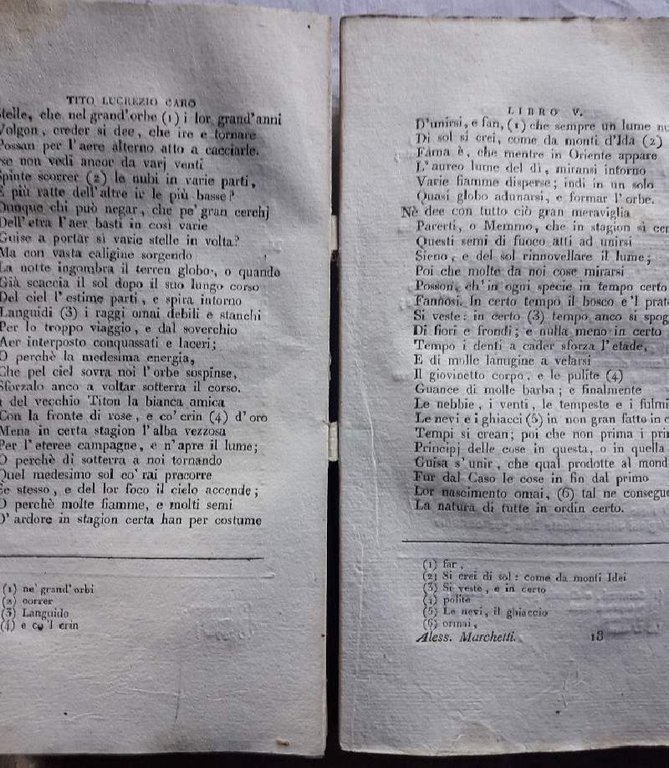 TITO LUCREZIO CARO
Stelle, che nel grand'orbe (1) i lor grand'anni
Volgon, creder si dee, che ire e tornare
Possan per l'aere alterno atto a cacciarle.
se non vedi ancor da varj venti
Spinte scorrer (2) le nubi in varie parti,
E più ratte dell'altre ir le più basse?
Dunque chi può negar, che pe' gran cerchj
Dell'etra l'aer basti in così varie
Guise a portar sì varie stelle in volta?
Ma con vasta caligine sorgendo
La notte ingombra il terren globo, o quando
Già scaccia il sol dopo il suo lungo corso
Del ciel l'estime parti, e spira intorno
Languidi (3) i raggi omai debili e stanchi
Per lo troppo viaggio, e dal soverchio
Aer interposto conquassati e laceri;
O perchè la medesima energia,
Che pel ciel sovra noi l'orbe sospinse,
Sforzalo anco a voltar sotterra il corso.
del vecchio Titon la bianca amica
Con la fronte di rose, e co' crin (4) d'oro
Mena in certa stagion l'alba vezzosa
Per l'eteree campagne, e n'apre il lume;
O perchè di sotterra a noi tornando
Quel medesimo sol co' rai precorre
Se stesso, e del lor foco il cielo accende;
O perchè molte fiamme, e molti semi
D'ardore in stagion certa han per costume
(1) ne' grand'orbi
(2) correr
(3) Languido
(4) e co'l crin
LIBRO V.
D'unirsi, e fan, (1) che sempre un lume
Di sol si crei, come da monti d'Ida (2)
Fama è, che mentre in Oriente appare
L'aureo lume del dì, miransi intorno
Varie fiamme disperse; indi in un solo
Quasi globo adunarsi, e formar l'orbe.
Nè dee con tutto ciò gran meraviglia
Parerti, o Memmo, che in stagion sì
Questi semi di fuoco atti ad unirsi
Sieno, e del sol rinnovellare il lume;
Poi che molte da noi cose mirarsi
Posson, ch'in ogni specie in tempo certo
Fannosi. In certo tempo il bosco e'l
Si veste: in certo (3) tempo anco si
Di fiori e frondi; e nulla meno in certo
Tempo i denti a cader sforza l'etade,
E di molle lanugine a velarsi
Il giovinetto corpo, e le pulite (4)
Guance di molle barba; e finalmente
Le nebbie, i venti, le tempeste e i
Le nevi e i ghiacci (5) in non gran fatto in
Tempi si crean; poi che non prima i
Principj delle cose in questa, o in quella
Guisa s'unir, che qual prodotte al
Fur dal Caso le cose in fin dal primo
Lor nascimento omai, (6) tal ne
La natura di tutte in ordin certo.
(1) far,
(2) Si crei di sol: come da monti Idei
(3) Si veste, e in certo
(4) polite
(5) Le nevi, il ghiaccio
(6) ormai,
Aless. Marchetti. 18